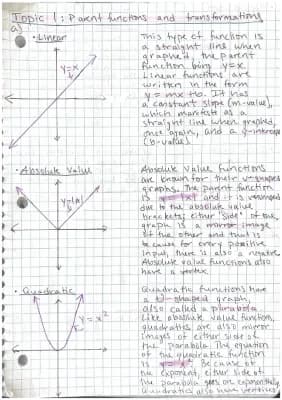 Topic 1: Parent functions and transformations
a)
• Linear
y=x
This type of function is
a straight line when
graphed, the parent
function being y=x.
Linear functions are
written in the form
y = mx+b. It has
a constant slope (m-value),
which manifests as a
straight line when graphed,
once again, and a y-intercept
(b-value).
• Absolute Value
y=|x|
Absolute Value functions
are known for their v-shaped
graphs. The parent function
is y=|x| and it is v-shaped
due to the absolute value
brackets; either "side" of the
graph is a mirror image
of the other and that is
because for every positive
input, there is also a negative
Absolute value functions also
have a vertex.
• Quadratic
y=x²
Quadratic functions have
a U-shaped graph,
also called a parabola.
Like absolute value function,
quadratics are also mirror
images of either side of
the parabola. The equation
of the quadratic function
is y=x². Because of
the exponent, either side of
the parabola goes on exponentially
Quadratics also have vertices.